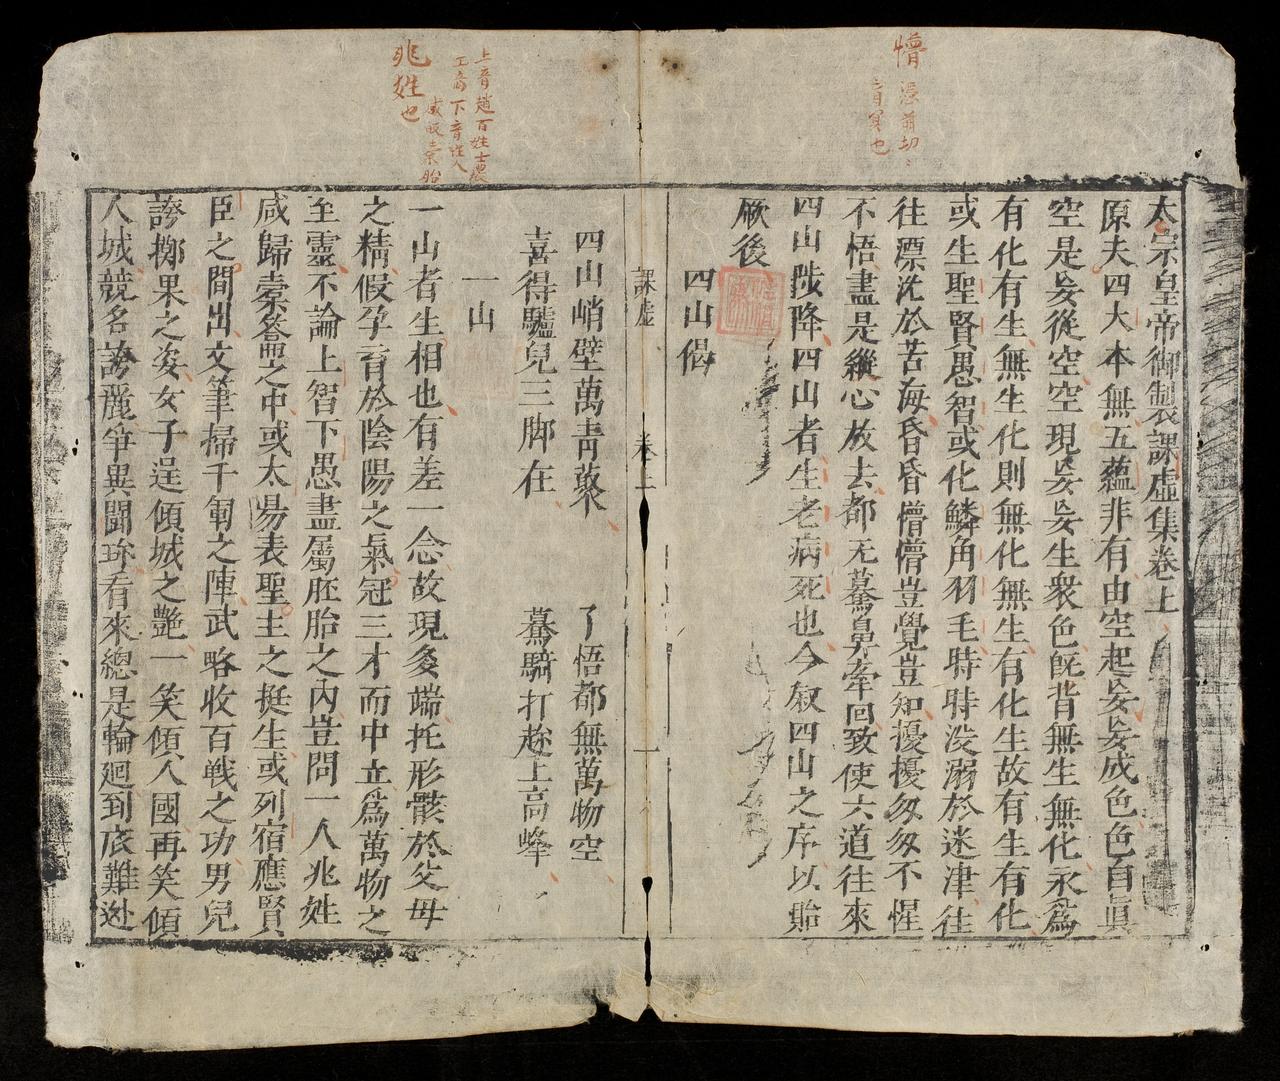 太宗皇帝御製課虛集卷上
原夫四大本無五蘊非有由空起妄妄成色色自眞
空是妄從空空現妄妄生衆色旣背無生無化永爲
有化有生無生化則無化無生有化生故有生有化
或生聖賢愚智或化鱗角羽毛時時没溺於迷津往
往漂沈於苦海昏昏懵懵豈覺豈知擾擾匆匆不惺
不悟盡是縱心放去都无驀鼻牽回致使六道往來
四山陟降四山者生老病死也今叙四山之序以貽
厥後
四山偈
課虛
卷上
一
四山峭壁萬青藂
了悟都無萬物空
喜得驢兒三脚在
驀騎打趂上高峰
一山
一山者生相也有差一念故現多端托形骸於父母
之精假孕育於陰陽之氣冠三才而中立爲萬物之
至靈不論上智下愚盡屬胚胎之内豈問一人兆姓
咸歸橐籥之中或太陽表聖主之挺生或列宿應賢
臣之間出文筆掃千軍之陣武略收百戦之功男兒
誇擲果之姿女子逞傾城之艶一笑傾人國再笑傾
人城競名誇麗爭異鬪珎看來總是輪廻到底難迯
懵
音冥也
兆姓也
上音趙百姓士農
工商下音性人